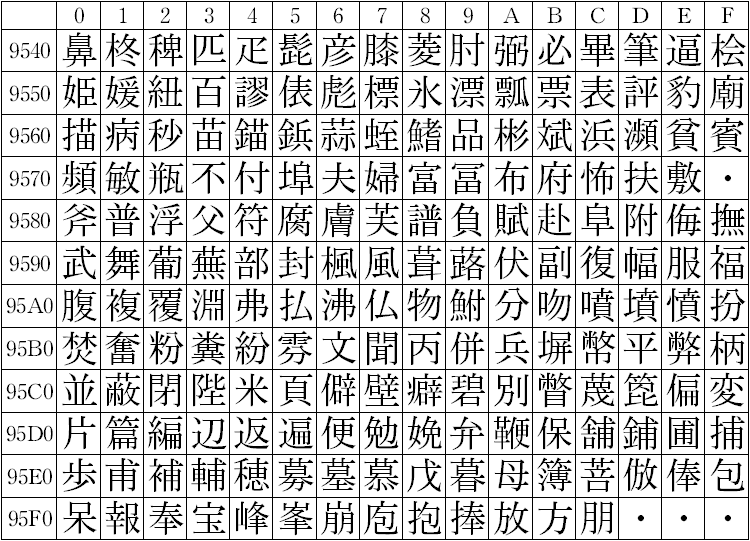 0 1 2 3 4 5 6 7 8 9 A B C D E F
9540 鼻 柊 稗 匹 疋 髭 彦 膝 菱 肘 弼 必 畢 筆 逼 桧
9550 姫 媛 紐 百 謬 俵 彪 標 氷 漂 瓢 票 表 評 豹 廟
9560 描 病 秒 苗 錨 鋲 蒜 蛭 鰭 品 彬 斌 浜 瀕 貧 賓
9570 頻 敏 瓶 不 付 埠 夫 婦 富 冨 布 府 怖 扶 敷 ・
9580 斧 普 浮 父 符 腐 膚 芙 譜 負 賦 赴 阜 附 侮 撫
9590 武 舞 葡 蕪 部 封 楓 風 葺 蕗 伏 副 復 幅 服 福
95A0 腹 複 覆 淵 弗 払 沸 仏 物 鮒 分 吻 噴 墳 憤 扮
95B0 焚 奮 粉 糞 紛 雰 文 聞 丙 併 兵 塀 幣 平 弊 柄
95C0 並 蔽 閉 陛 米 頁 僻 壁 癖 碧 別 瞥 蔑 箆 偏 変
95D0 片 篇 編 辺 返 遍 便 勉 娩 弁 鞭 保 舗 鋪 圃 捕
95E0 歩 甫 補 輔 穂 募 墓 慕 戊 暮 母 簿 菩 倣 俸 包
95F0 呆 報 奉 宝 峰 峯 崩 庖 抱 捧 放 方 朋 ・ ・ ・